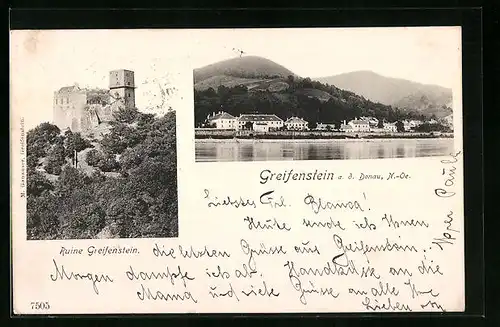 Greifenstein a. d. Donau, N.-Oe.
Liebstes Frl. Bianca!
Heute sende ich Ihnen
Ruine Greifenstein. die letzten Grüsse aus Greifenstein,
Morgen dampfe ich ab. Handküsse an die
Mama und viele Grüsse an alle Ihre
Lieben
Paula
7505